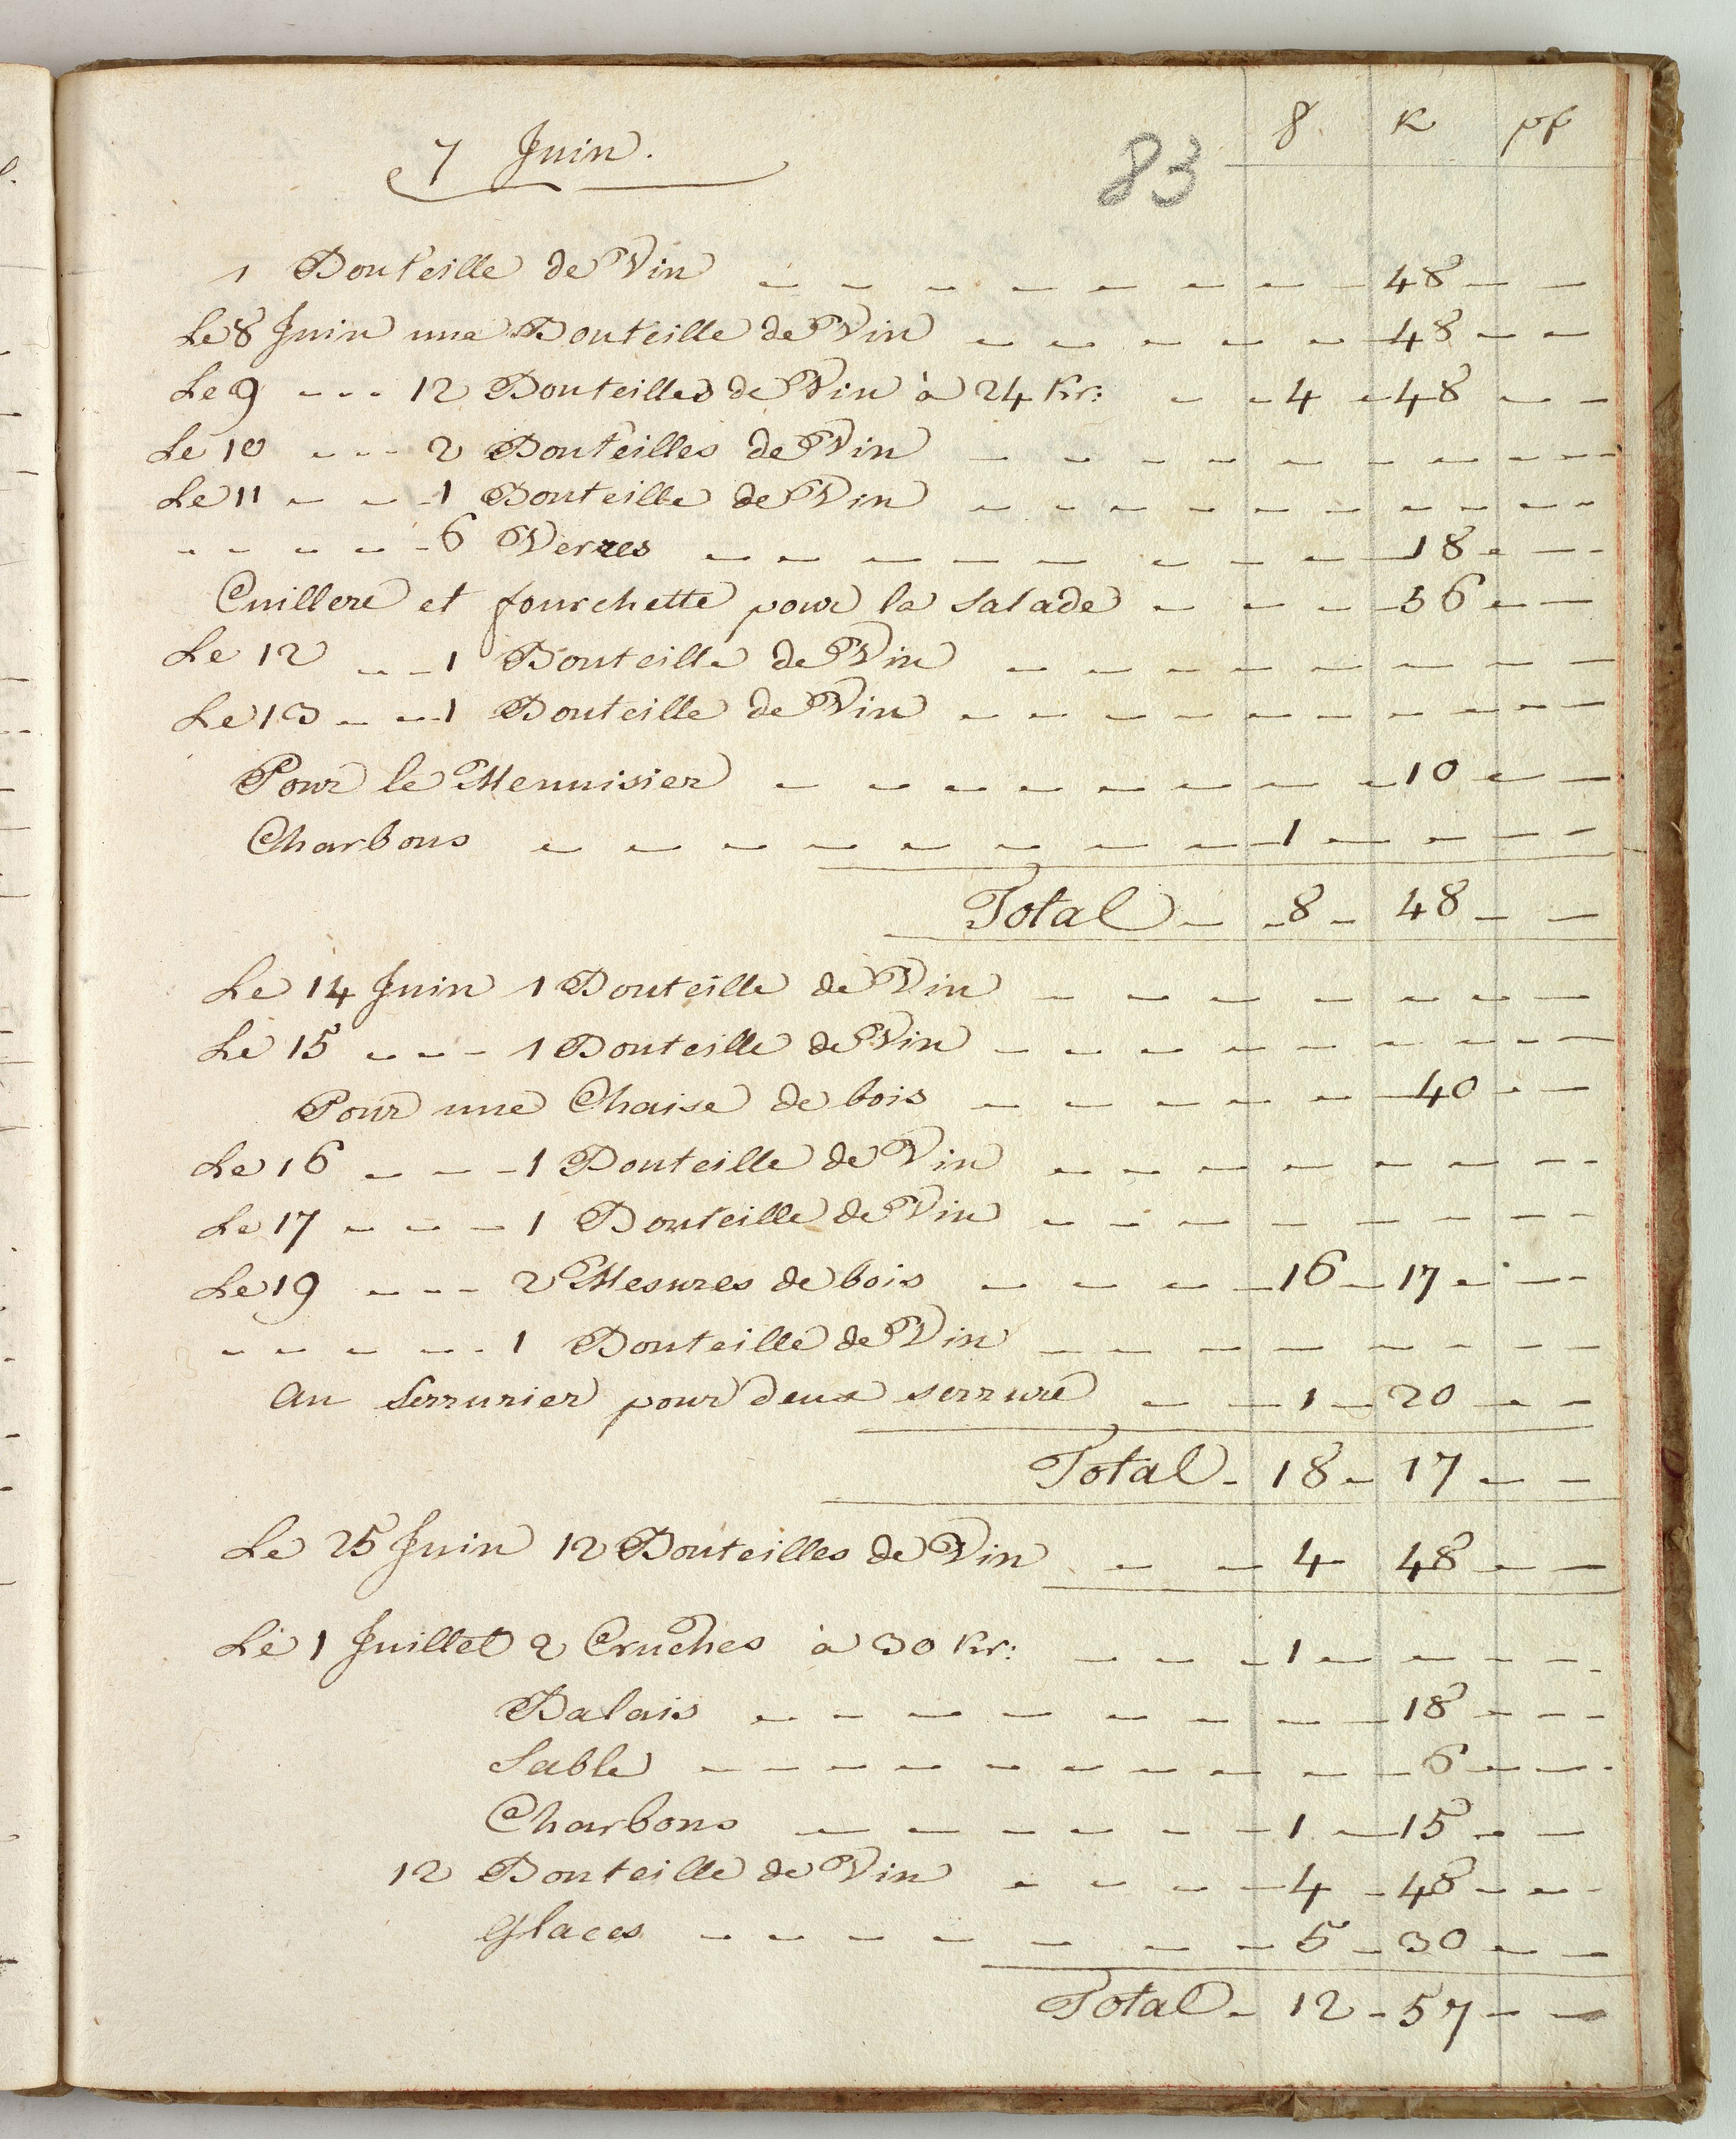 7 Juin.
83
f. K pf
1 Bouteille de Vin - - - - - - - - 48 - -
Le 8 Juin une Bouteille de Vin - - - - - 48 - -
Le 9 - - - 12 Bouteilles de Vin à 24 Kr: - - 4 - 48 - -
Le 10 - - - 2 Bouteilles de Vin - - - - - - - - -
Le 11 - - - 1 Bouteille de Vin - - - - - - - - -
- - - - - 6 Verres - - - - - - - - 18 - - -
Cuillere et fourchette pour la Salade - - - - 56 - -
Le 12 - - 1 Bouteille de Vin - - - - - - - -
Le 13 - - 1 Bouteille de Vin - - - - - - - - -
Pour le Menuisier - - - - - - - - 10 - -
Charbons - - - - - - - - - 1 - - - -
Total - - 8 - 48 - -
Le 14 Juin 1 Bouteille de Vin - - - - - - -
Le 15 - - - 1 Bouteille de Vin - - - - - - - - -
Pour une Chaise de bois - - - - - - 40 - -
Le 16 - - - 1 Bouteille de Vin - - - - - - - -
Le 17 - - - 1 Bouteille de Vin - - - - - - - -
Le 19 - - - 2 Mesures de bois - - - - 16 - 17 - - -
- - - - - 1 Bouteille de Vin - - - - - - - -
Au Serrurier pour deux serrure - - 1 - 20 - -
Total - 18 - 17 - -
Le 25 Juin 12 Bouteilles de Vin - - 4 48 - -
Le 1 Juillet 2 Cruches à 30 Kr: - - - 1 - - - -
Balais - - - - - - - - 18 - - -
Sable - - - - - - - - - - 6 - - -
Charbons - - - - - - 1 - 15 - -
12 Bouteille de Vin - - - - 4 - 48 - - -
Glaces - - - - - - - 5 - 30 - -
Total - 12 - 57 - -